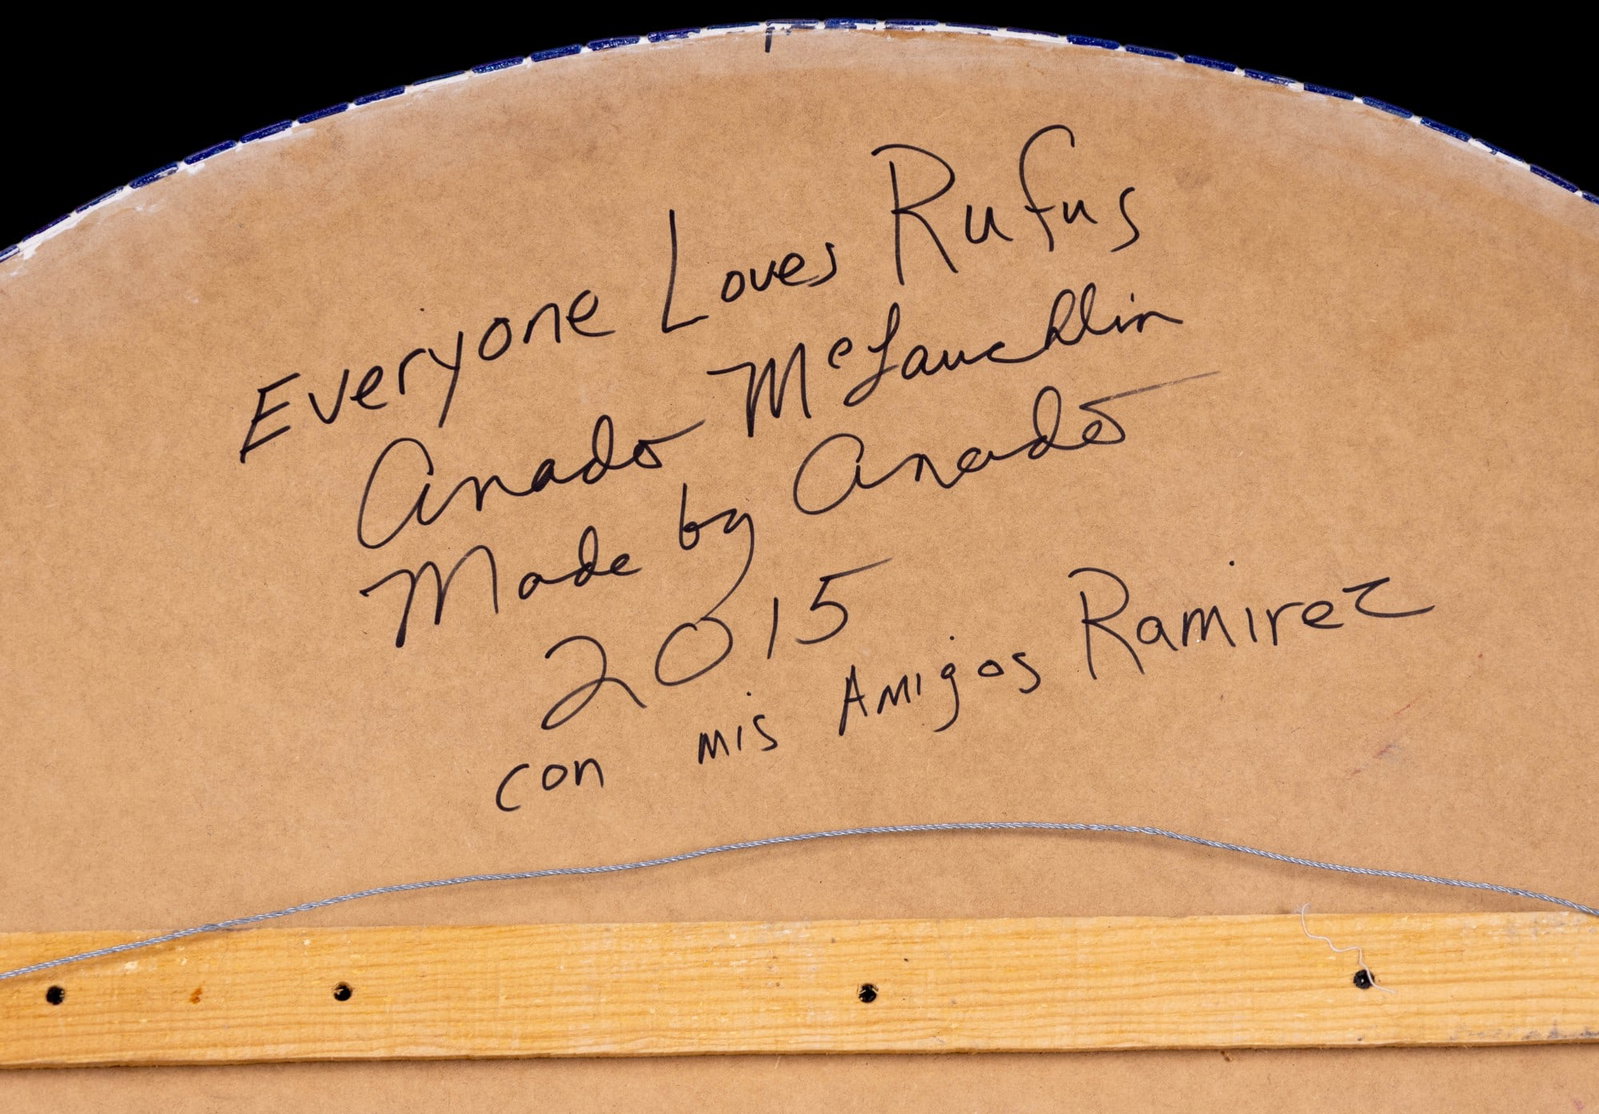 Everyone Loves Rufus
Anado McLauchlin
Made by Anado
2015
con mis Amigos Ramirez